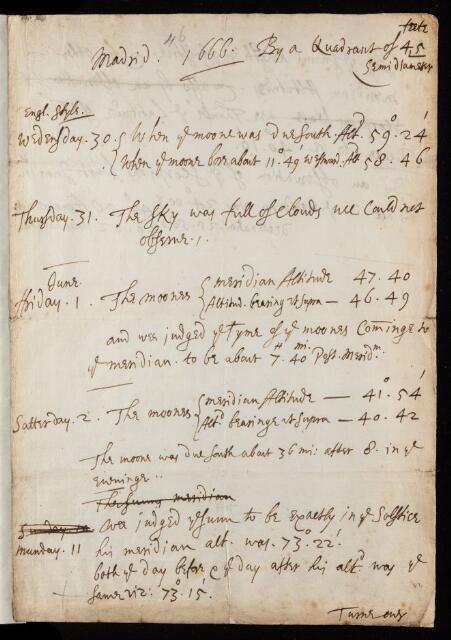 46
Madrid. 1666. By a Quadrant of 4,5 feete
Semidiameter
Engl. Style.
Wedensday. 30. { When ye moone was due South Altd 59° 24'
{ When ye moone bore about 11° 49 westward Alt 58. 46
Thursday. 31. The Sky was full of Clouds wee Could not
observe.
June.
ffriday. 1. The moones { meridian Altitude 47. 40
{ Altitud. bearing ut supra — 46. 49
and wee judged ye tyme of ye moones Comminge to
ye meridian. to be about 7.H 40 mi. Post. Meridm.
Satterday. 2. The moones { meridian Altitude — 41° 54'
{ Altd bearinge ut supra — 40. 42
The moone was due South about 36 mi: after 8. in ye
eveninge.
The sunns meridian
Sunday
Munday. 11 Wee judged ye sunn to be exactly in ye Solstice
his meridian alt. was. 73° 22'.
both ye day before & ye day after his altd was ye
same viz: 73° 15'.
Turne over